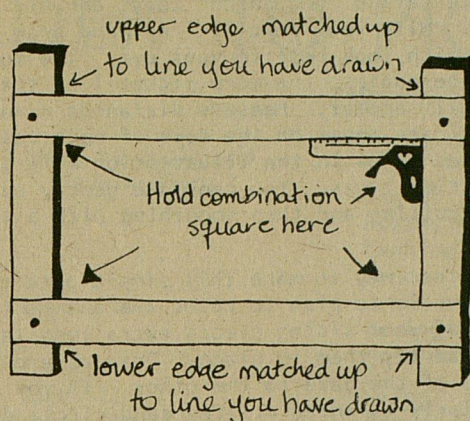 upper edge matched up
to line you have drawn
Hold combination
square here
lower edge matched up
to line you have drawn